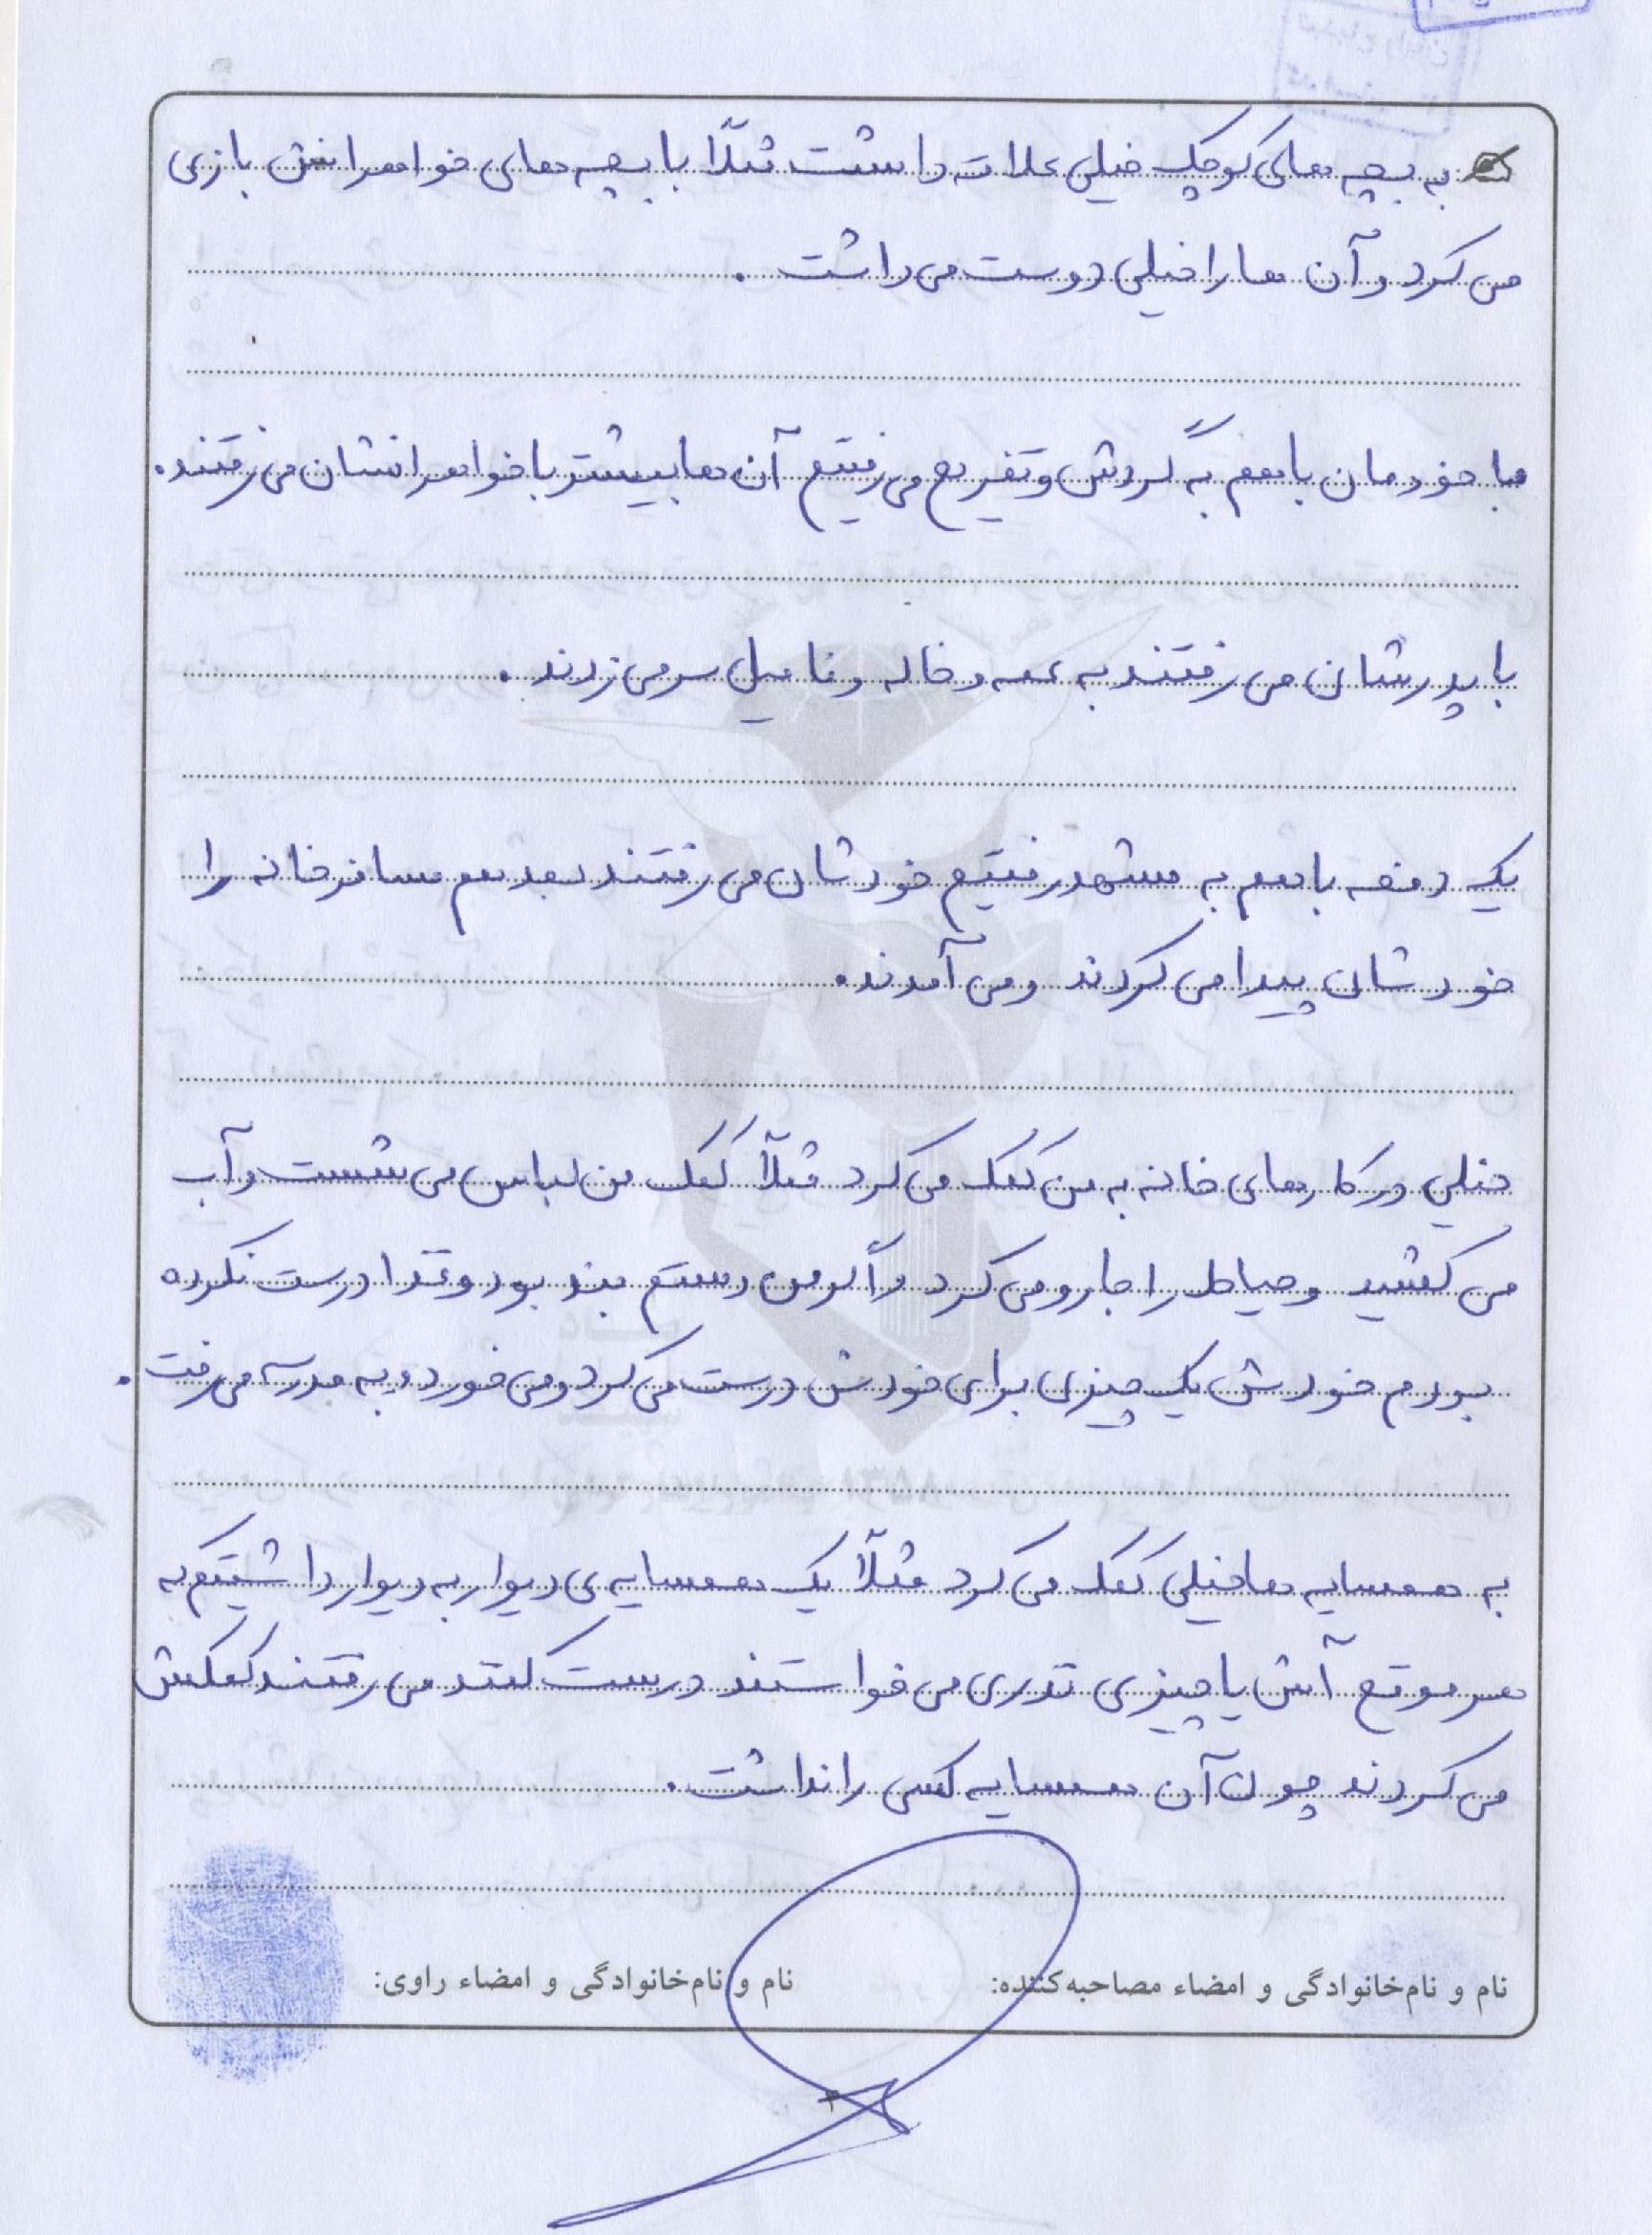 به بچه های کوچک خیلی علاقه داشت مثلاً با بچه های خواهرانش بازی
می کرد و آن ها را خیلی دوست می داشت .
ما خودمان با هم به گردش و تفریح می رفتیم آن ها بیشتر با خواهرانشان می رفتند .
با پدرشان می رفتند به عمه و خاله و فامیل سر می زدند .
یک دفعه با هم به مشهد رفتیم خودشان می رفتند بعد هم مسافرخانه را
خودشان پیدا می کردند و می آمدند .
خیلی در کارهای خانه به من کمک می کرد مثلاً کمک من لباس می شست و آب
می کشید و حیاط را جارو می کرد و اگر من دستم بند بود و غذا درست نکرده
بودم خودش یک چیزی برای خودش درست می کرد و می خورد و به مدرسه می رفت .
به همسایه ها خیلی کمک می کرد مثلاً یک همسایه ی دیوار به دیوار داشتیم که
هر موقع آش یا چیزی نذری می خواستند درست کنند می رفتند کمکش
می کردند چون آن همسایه کسی را نداشت .
نام و نام‌خانوادگی و امضاء مصاحبه‌کننده: نام و نام‌خانوادگی و امضاء راوی: